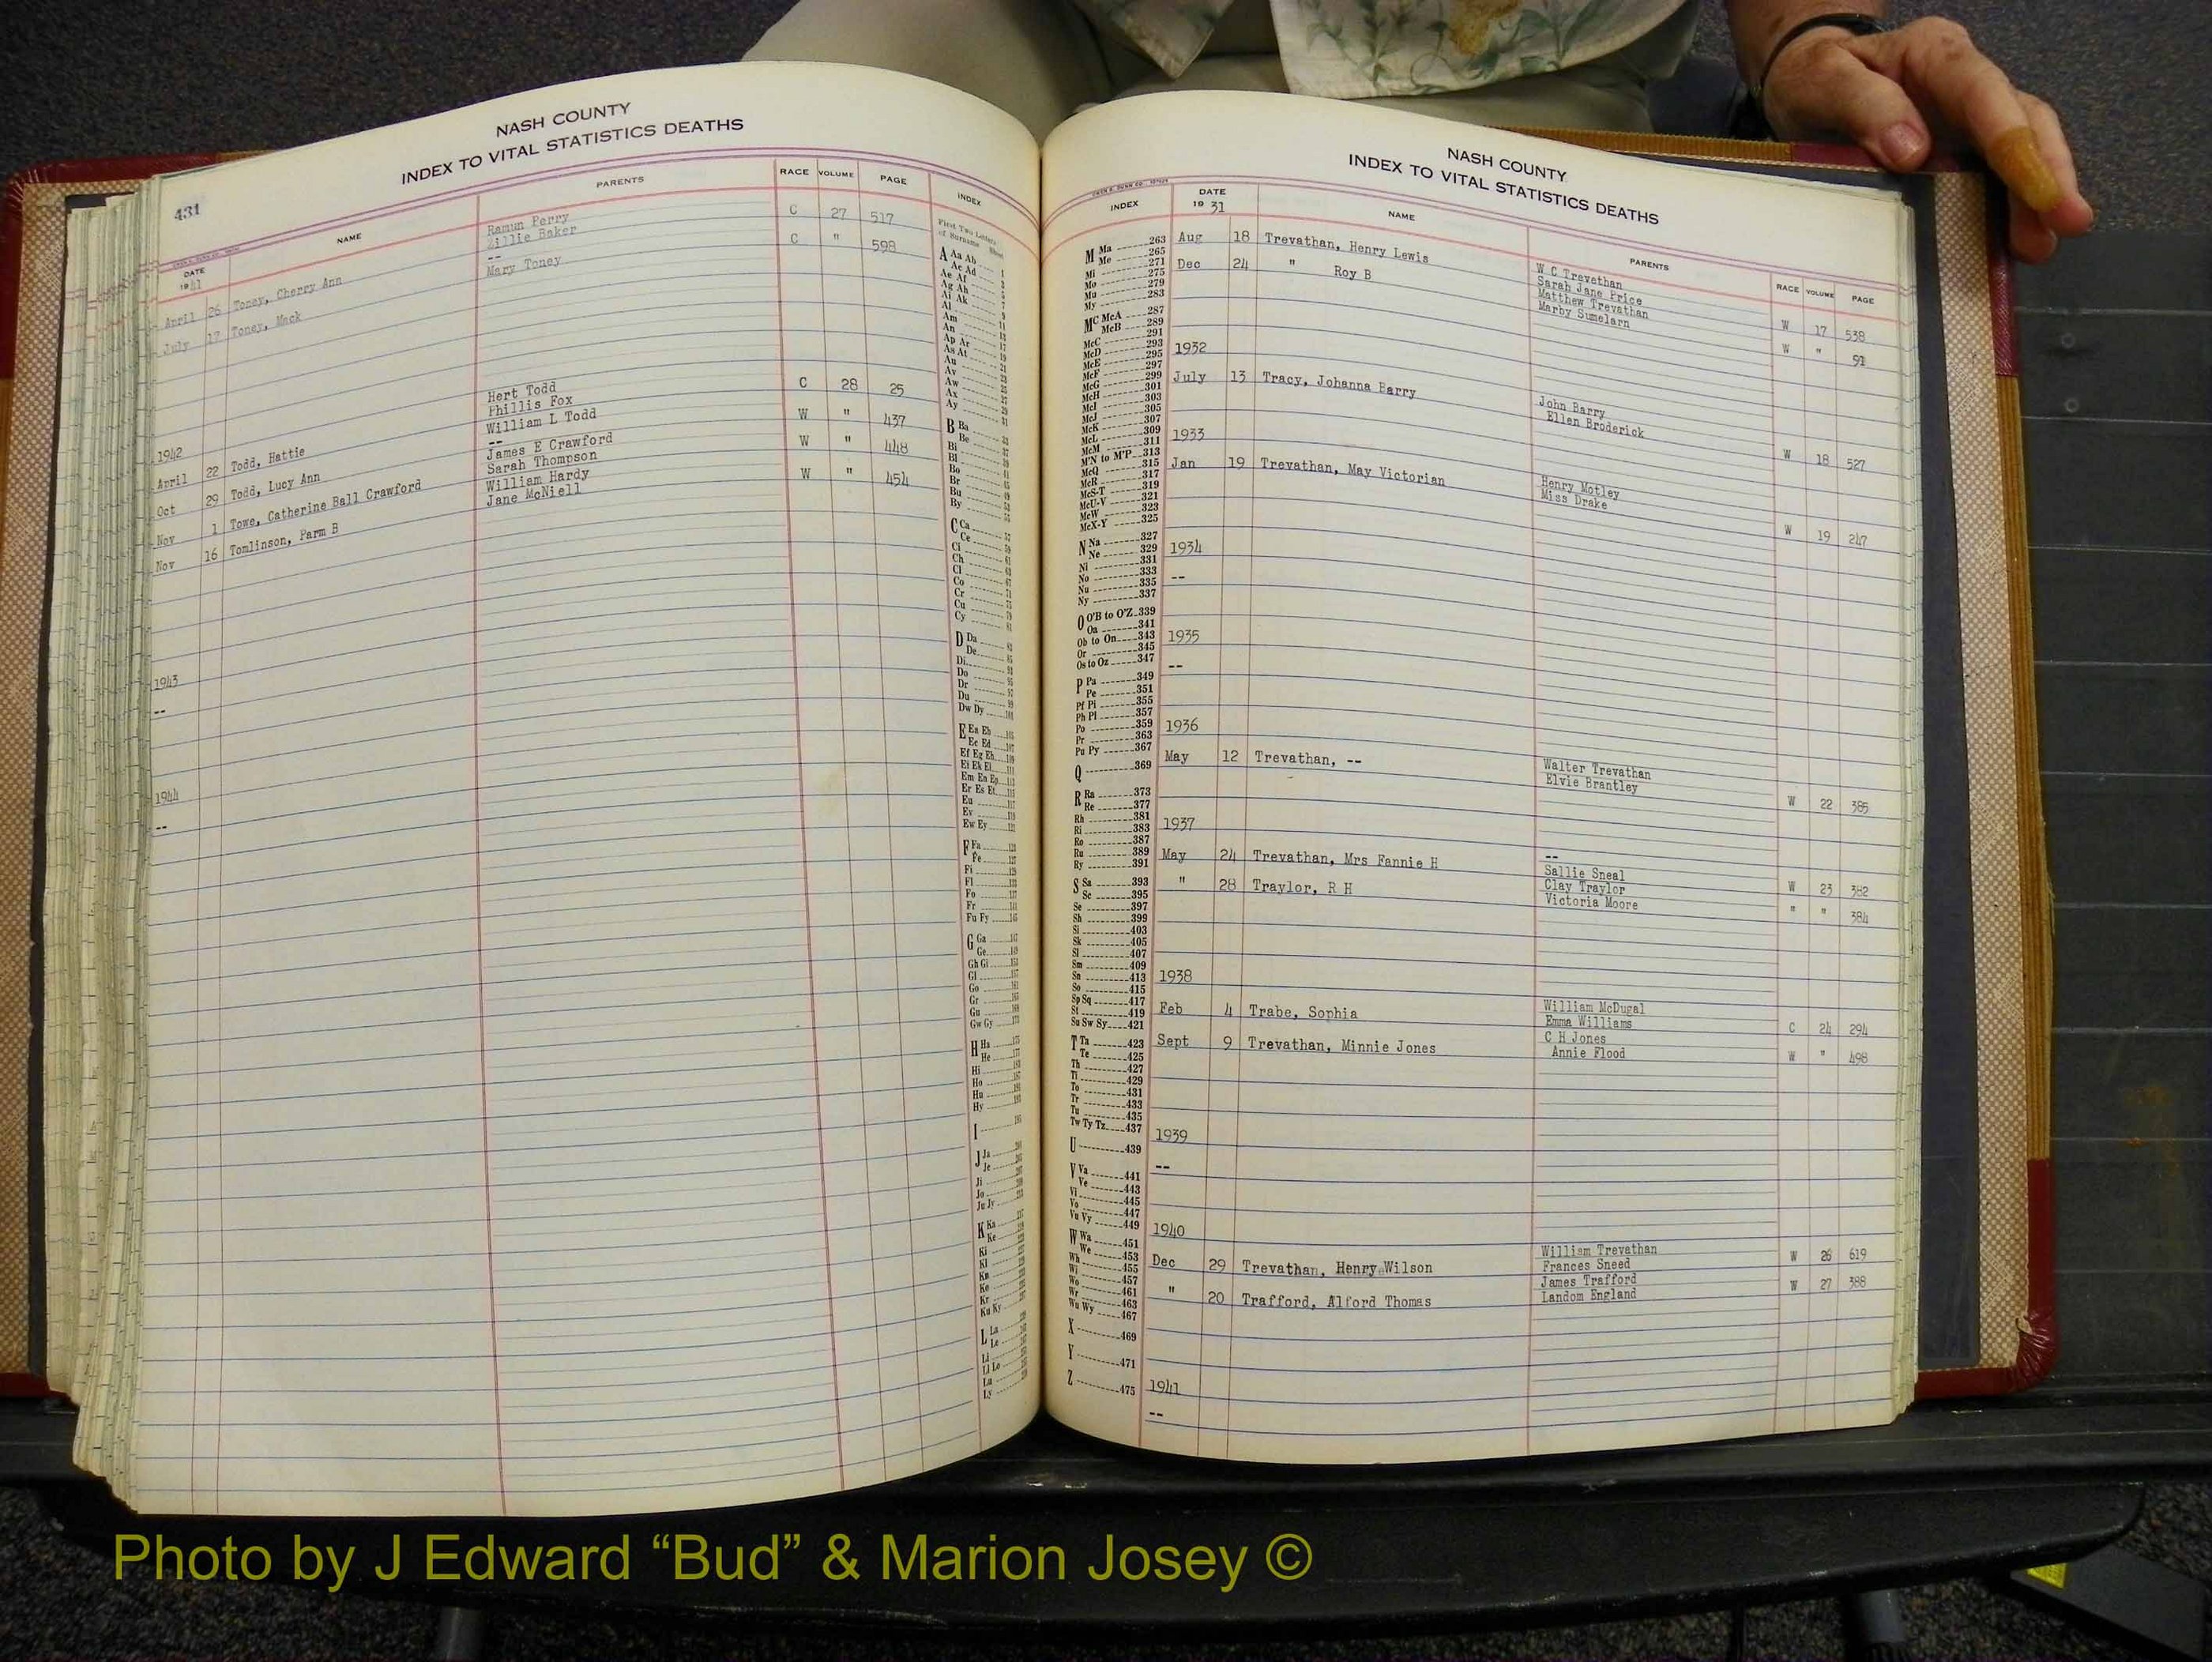 NASH COUNTY
INDEX TO VITAL STATISTICS DEATHS
431
DATE NAME PARENTS RACE VOLUME PAGE INDEX
1941
April 26 Toney, Cherry Ann Ramun Perry C 27 517
Zillie Baker
July 17 Toney, Mack -- C " 598
Mary Toney
1942
April 22 Todd, Hattie Hert Todd C 28 25
Phillis Fox
Oct 29 Todd, Lucy Ann William L Todd W " 437
--
Nov 1 Towe, Catherine Ball Crawford James E Crawford W " 448
Sarah Thompson
Nov 16 Tomlinson, Parm B William Hardy W " 454
Jane McNiell
1943
--
1944
--
First Two Letters
of Surname
A Aa Ab
Ac Ad
Ae Af
Ag Ah
Ai Ak
Al
Am
An
Ap Ar
As At
Au
Av
Aw
Ax
Ay
B Ba
Be
Bi
Bl
Bo
Br
Bu
By
C Ca
Ce
Ci
Ch
Cl
Co
Cr
Cu
Cy
D Da
De
Di
Do
Dr
Du
Dw Dy
E Ea Eb
Ec Ed
Ef Eg Eh
Ei Ek El
Em En Ep
Er Es Et
Eu
Ev
Ew Ey
F Fa
Fe
Fi
Fl
Fo
Fr
Fu Fy
G Ga
Ge
Gh Gi
Gl
Go
Gr
Gu
Gw Gy
H Ha
He
Hi
Ho
Hu
Hy
I
J Ja
Je
Ji
Jo
Ju Jy
K Ka
Ke
Ki
Kl
Kn
Ko
Kr
Ku Ky
L La
Le
Li
Ll Lo
Lu
Ly
NASH COUNTY
INDEX TO VITAL STATISTICS DEATHS
INDEX DATE NAME PARENTS RACE VOLUME PAGE
19 31
M Ma 263
Me 265
Mi 271
Mo 275
Mu 279
My 283
MC McA 287
McB 289
McC 291
McD 293
McE 295
McF 297
McG 299
McH 301
McI 303
McJ 305
McK 307
McL 309
McM 311
M'N to M'P 313
McQ 315
McR 317
McS-T 319
McU-V 321
McW 323
McX-Y 325
N Na 327
Ne 329
Ni 331
No 333
Nu 335
Ny 337
O O'B to O'Z 339
Oa 341
Ob to On 343
Or 345
Os to Oz 347
P Pa 349
Pe 351
Pf Pi 355
Ph Pl 357
Po 359
Pr 363
Pu Py 367
Q 369
R Ra 373
Re 377
Rh 381
Ri 383
Ro 387
Ru 389
Ry 391
S Sa 393
Sc 395
Se 397
Sh 399
Si 403
Sk 405
Sl 407
Sm 409
Sn 413
So 415
Sp Sq 417
St 419
Su Sw Sy 421
T Ta 423
Te 425
Th 427
Ti 429
To 431
Tr 433
Tu 435
Tw Ty Tz 437
U 439
V Va 441
Ve 443
Vi 445
Vo 447
Vu Vy 449
W Wa 451
We 453
Wh 455
Wi 457
Wo 461
Wr 463
Wu Wy 467
X 469
Y 471
Z 475
Aug 18 Trevathan, Henry Lewis W C Trevethan W 17 538
Sarah Jane Price
Dec 24 " Roy B Matthew Trevathan W "
Marby Sumelarn
1932
July 13 Tracy, Johanna Barry John Barry W 18 527
Ellen Broderick
1933
Jan 19 Trevathan, May Victorian Henry Motley W 19 247
Miss Drake
1934
--
1935
--
1936
May 12 Trevathan, -- Walter Trevathan W 22 385
Elvie Brantley
1937
May 24 Trevathan, Mrs Fannie H -- W 23 382
Sallie Sneal
" 28 Traylor, R H Clay Traylor " " 384
Victoria Moore
1938
Feb 4 Trabe, Sophia William McDugal C 24 294
Emma Williams
Sept 9 Trevathan, Minnie Jones C H Jones W " 498
Annie Flood
1939
--
1940
Dec 29 Trevathan, Henry Wilson William Trevathan W 26 619
Frances Sneed
" 20 Trafford, Alford Thomas James Trafford W 27 388
Landom England
1941
--
Photo by J Edward “Bud” & Marion Josey ©